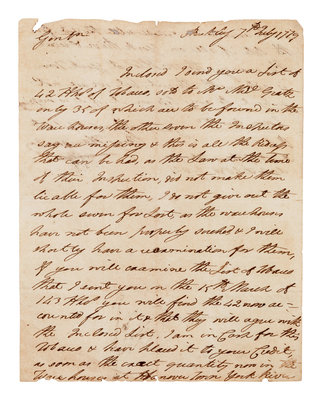 Gentn
7th July 1789
Inclosed I send you a List of
42 Hhds of Tobacco, sold to Mr Nick
only 35 of which are to be found in the
ware houses, the other seven the Inspectors
say are missing & this is all the
that can be had, as the Law at the time
of their Inspection, did not make them
liable for them, I do not give out the
whole seven for Lost, as the warehouses
have not been properly searched & I will
shortly have a reexamination for them,
if you will examine the List of Tobacco
that I sent you in the 15th March of
143 Hhds you will find the 42 now ac-
counted for in it & that they will agree with
the Inclosed List, I am in Cash for this
Tobacco & have placed it to your Credit,
as soon as the exact quantity now in the
Ware houses at Hanover Town York River